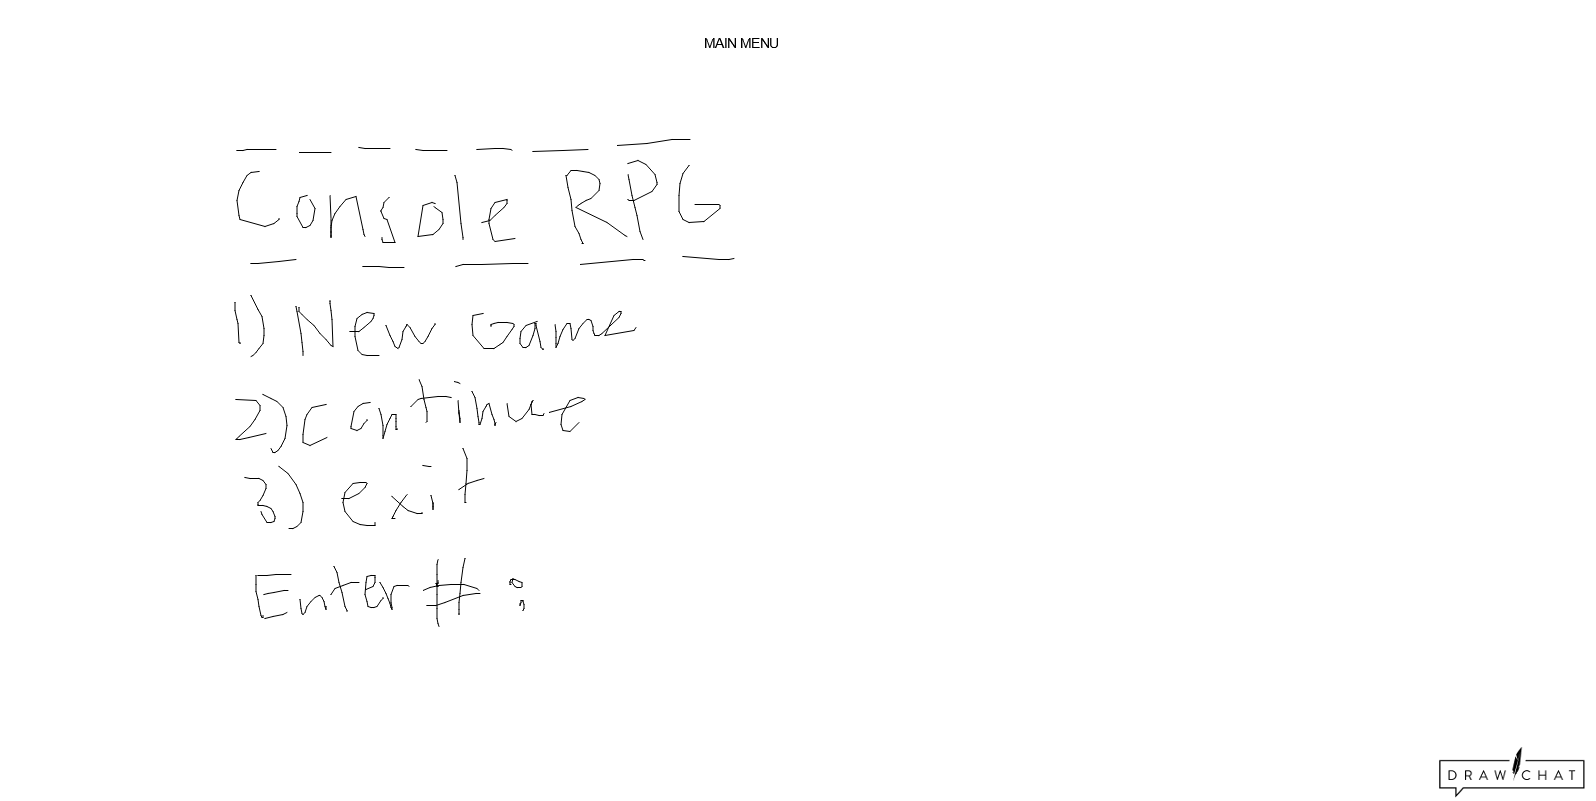 MAIN MENU
_ _ _ _ _ _ _
Console RPG
_ _ _ _ _
1) New Game
2) continue
3) exit
Enter # :
DRAW CHAT